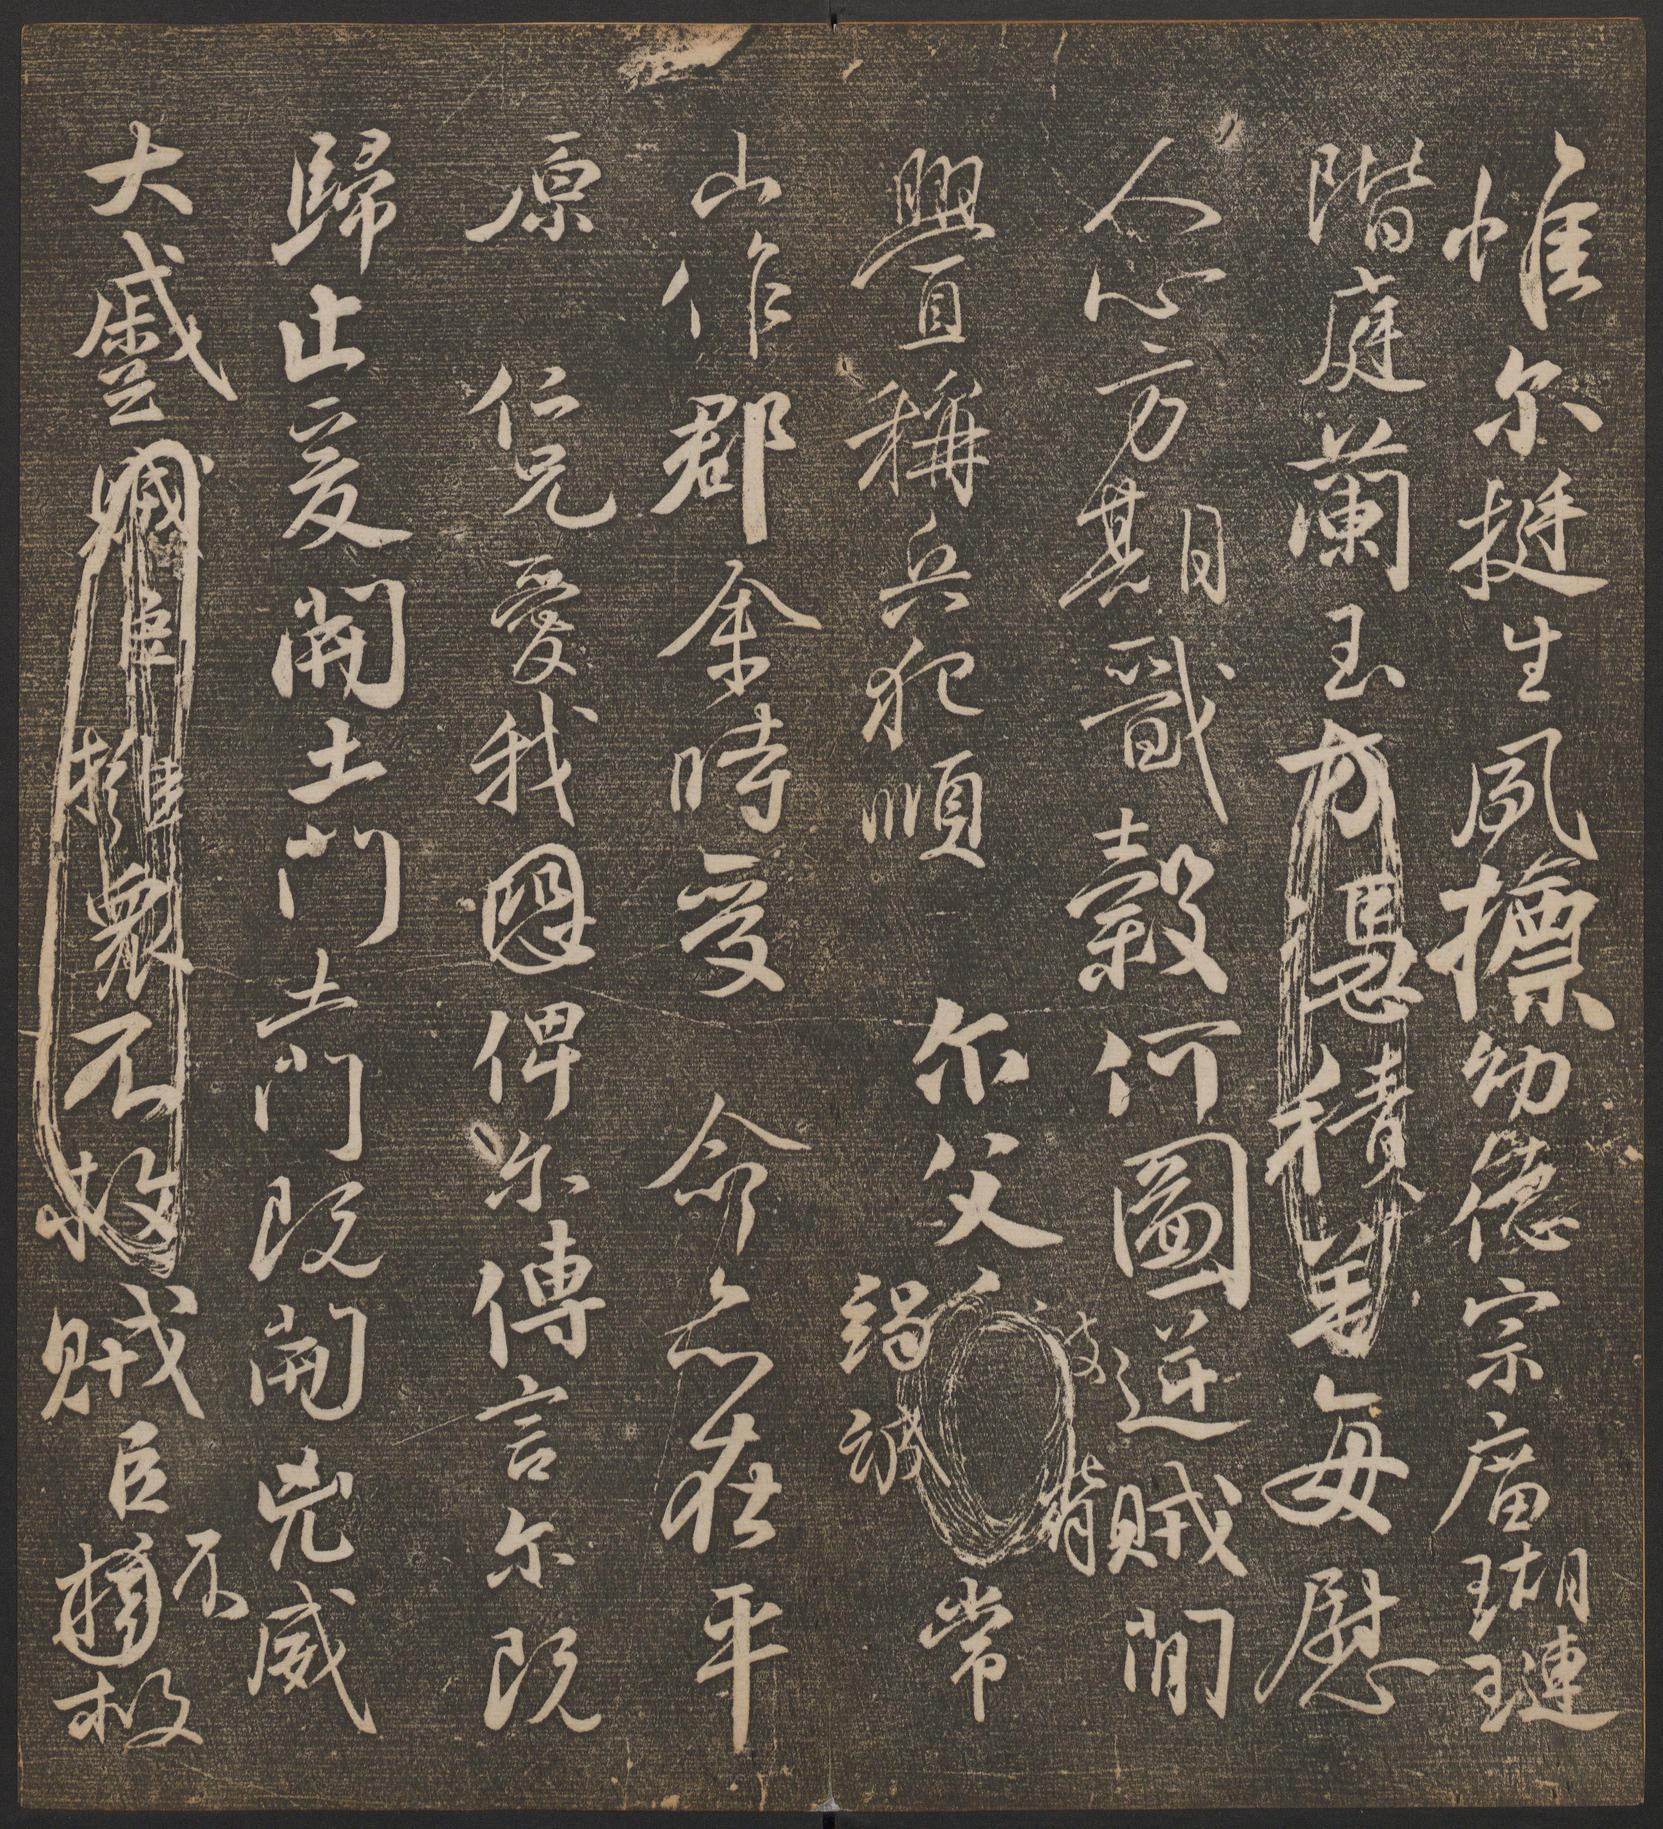 惟尔挺生夙標幼德宗廟瑚璉
階庭蘭玉方憑積善每慰
人心方期戩穀何圖逆賊閒
舋稱兵犯順 尔父竭誠常
山作郡余時受 命亦在平
原 仁兄愛我恩俾尔傳言尔既
歸止爰開土門土門既開凶威
大蹙賊臣擁衆不救賊臣不擁救